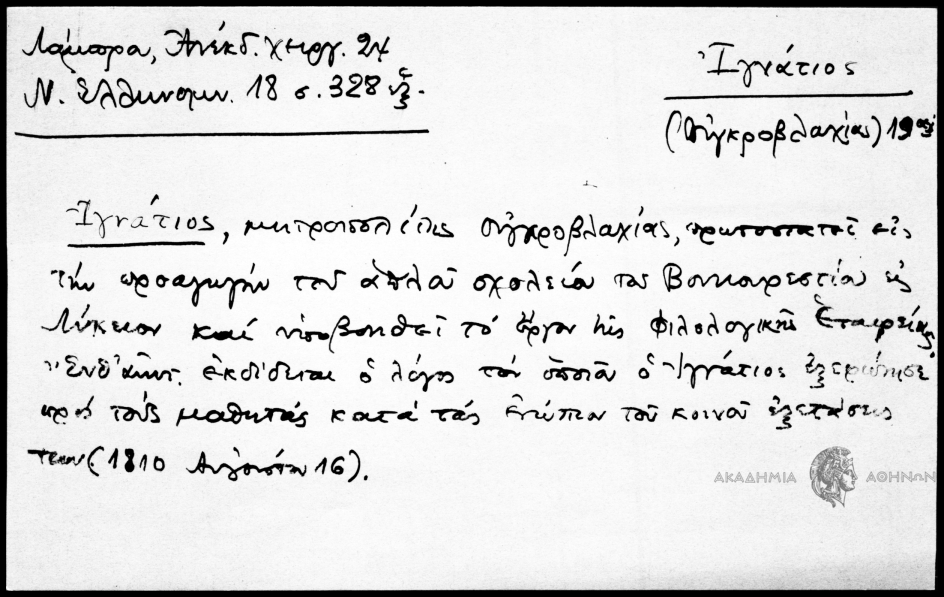 Λάμπρα, Ἀνέκδ. χειργ. 24
Ν. Ἑλληνομν. 18 σ. 328 ἑξ.
Ἰγνάτιος
(Οὑγκροβλαχίας) 19
Ἰγνάτιος, μητροπολίτης Οὑγκροβλαχίας, πρωτοστατεῖ εἰς
τὴν προαγωγὴν τοῦ ἁπλοῦ σχολείου τοῦ Βουκουρεστίου εἰς
Λύκειον καὶ ὑποβοηθεῖ τὸ ἔργον τῆς φιλολογικῆς Ἑταιρείας.
ἐκδίδεται ὁ λόγος τὸν ὁποῖον ὁ Ἰγνάτιος ἐξεφώνησε
πρὸς τοὺς μαθητὰς κατὰ τὰς ἐνώπιον τοῦ κοινοῦ ἐξετάσεις
των (1810 Αὐγούστου 16).
ΑΚΑΔΗΜΙΑ ΑΘΗΝΩΝ